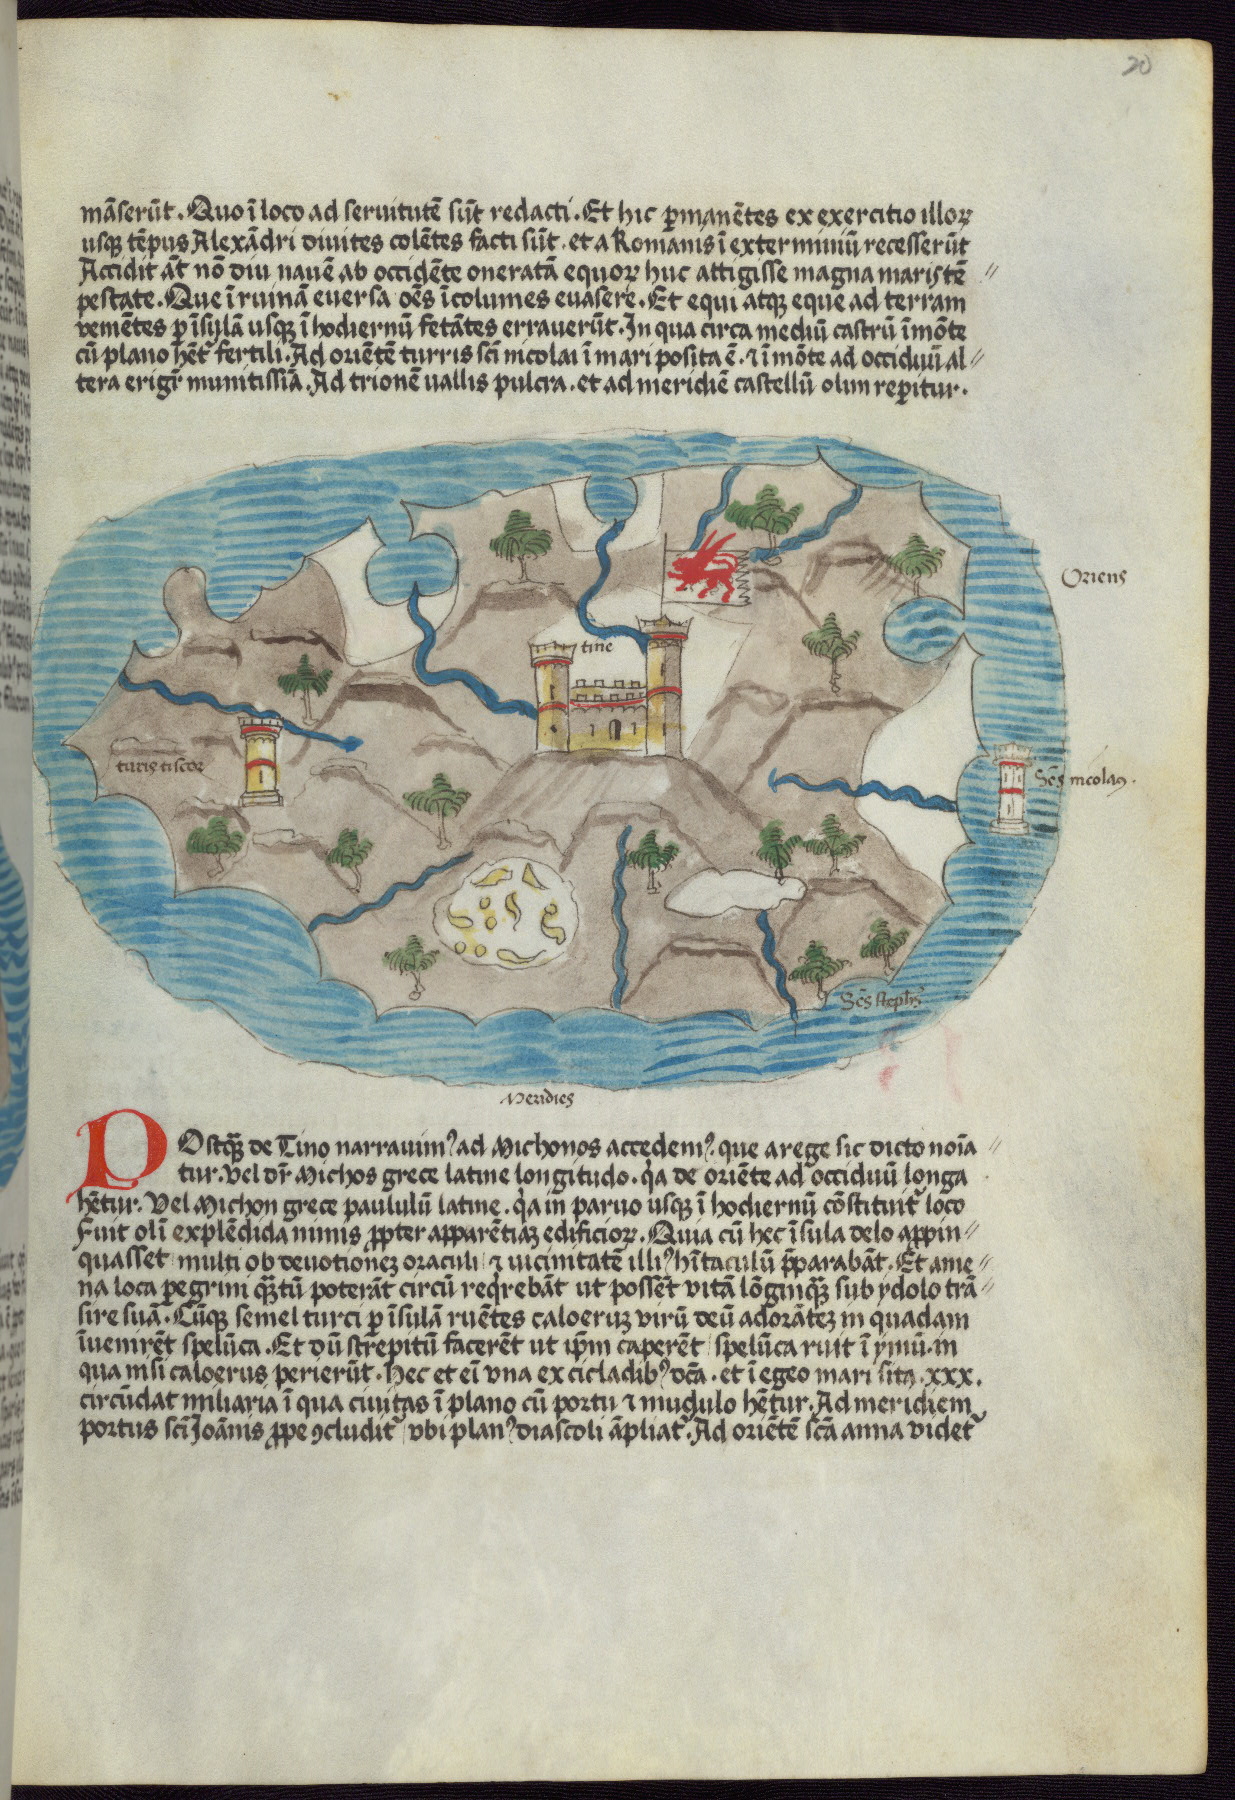 20
mãserũt. Quo ĩ loco ad seruitutẽ sũt redacti. Et hic ꝑmanẽtes ex exercitio illoꝝ
usqꝫ tẽpus Alexãdri diuites colẽtes facti sũt. et a Romanis ĩ exterminiũ recesserũt
Accidit ãt nõ diu nauẽ ab occidẽte oneratã equoꝝ huc attigisse magna maris tẽ〃
pestate. Que ĩ ruinã euersa oẽs ĩcolumes euasere. Et equi atqꝫ eque ad terram
vemẽtes ꝑ ĩsulã usqꝫ ĩ hodiernũ fetãtes errauerũt. In qua circa mediũ castrũ ĩ mõte
cũ plano hẽtʳ fertili. Ad oriẽtẽ turris scĩ nicolai ĩ mari posita ẽ. ⁊ ĩ mõte ad occiduũ al〃
tera erigʳ munitissiã. Ad trionẽ uallis pulcra. et ad meridiẽ castellũ olim reꝑitur.
Oriens
tine
turis tiscoꝝ
Scs̃ nicolaꝰ.
Scs̃ stephꝰ
Meridies
POstqꝫ̃ de Tino narrauimꝰ ad Michonos accedemꝰ. que a rege sic dicto noĩa〃
tur. Vel dr̃ Michos grece latine longitudo. qͥa de oriẽte ad occiduũ longa
hẽtur. Vel Michon grece paululũ latine. qͥa in paruo usqꝫ ĩ hodiernũ cõstituitʳ loco
Fuit olĩ explẽdida nimis ꝓpter apparẽtiãꝫ edificioꝝ. Quia cũ hec ĩsula delo appin〃
quasset multi ob deuotionẽꝫ oraculi ⁊ uicinitatẽ illiꝰ hĩtaculũ p̃parabãt. Et ame〃
na loca pegrini qꝫ̃tũ poterãt circũ reqͥrebãt ut possẽt vitã lõginqꝫ̃ sub ydolo trã〃
sire suã. Cũqꝫ semel turci ꝑ ĩsulã ruẽtes caloeruꝫ virũ deũ adorãteꝫ in quadam
ĩuenirẽt spelũca. Et dũ strepitũ facerẽt ut ip̃m caperẽt spelũca ruit ĩ ymũ. in
qua nisi caloerus perierũt. Hec et eĩ vna ex cicladibꝰ dc̃a. et ĩ egeo mari sita. xxx.
circũdat miliaria ĩ qua ciuitas ĩ plano cũ portu ⁊ mugulo hẽtur. Ad meridiem
portus scĩ Joãnis ꝓpe ꝯcluditʳ vbi planꝰ diascoli ãpliatʳ. Ad oriẽtẽ sc̃ã anna videtʳ